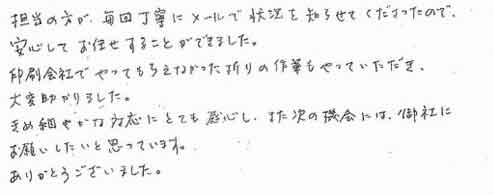 担当の方が、毎回丁寧にメールで状況を知らせてくださったので、
安心してお任せすることができました。
印刷会社でやってもらえなかった折りの作業もやっていただき、
大変助かりました。
きめ細やかな対応にとても感心し、また次の機会には、御社に
お願いしたいと思っています。
ありがとうございました。